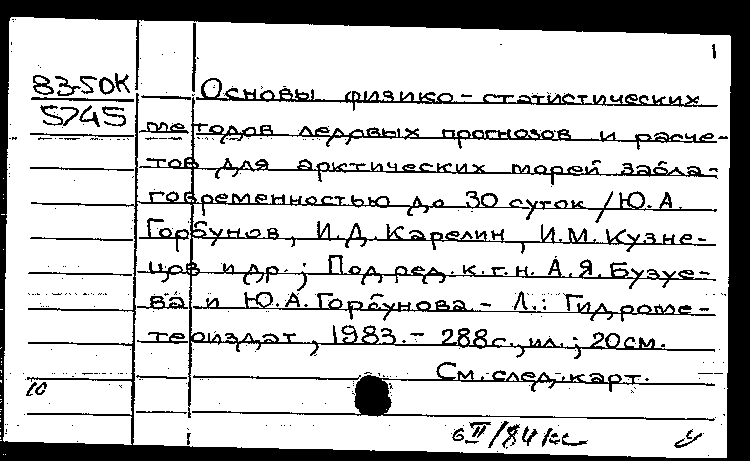 1
83-50К
5745
Основы физико-статистических
методов ледовых прогнозов и расче-
тов для арктических морей забла-
говременностью до 30 суток /Ю.А.
Горбунов, И.Д. Карелин, И.М. Кузне-
цов и др.; Под ред. к.г.н. А.Я. Бузуе-
ва и Ю.А. Горбунова.- Л.: Гидроме-
теоиздат, 1983.- 288с., ил.; 20см.
См. след. карт.
10
6 II/84